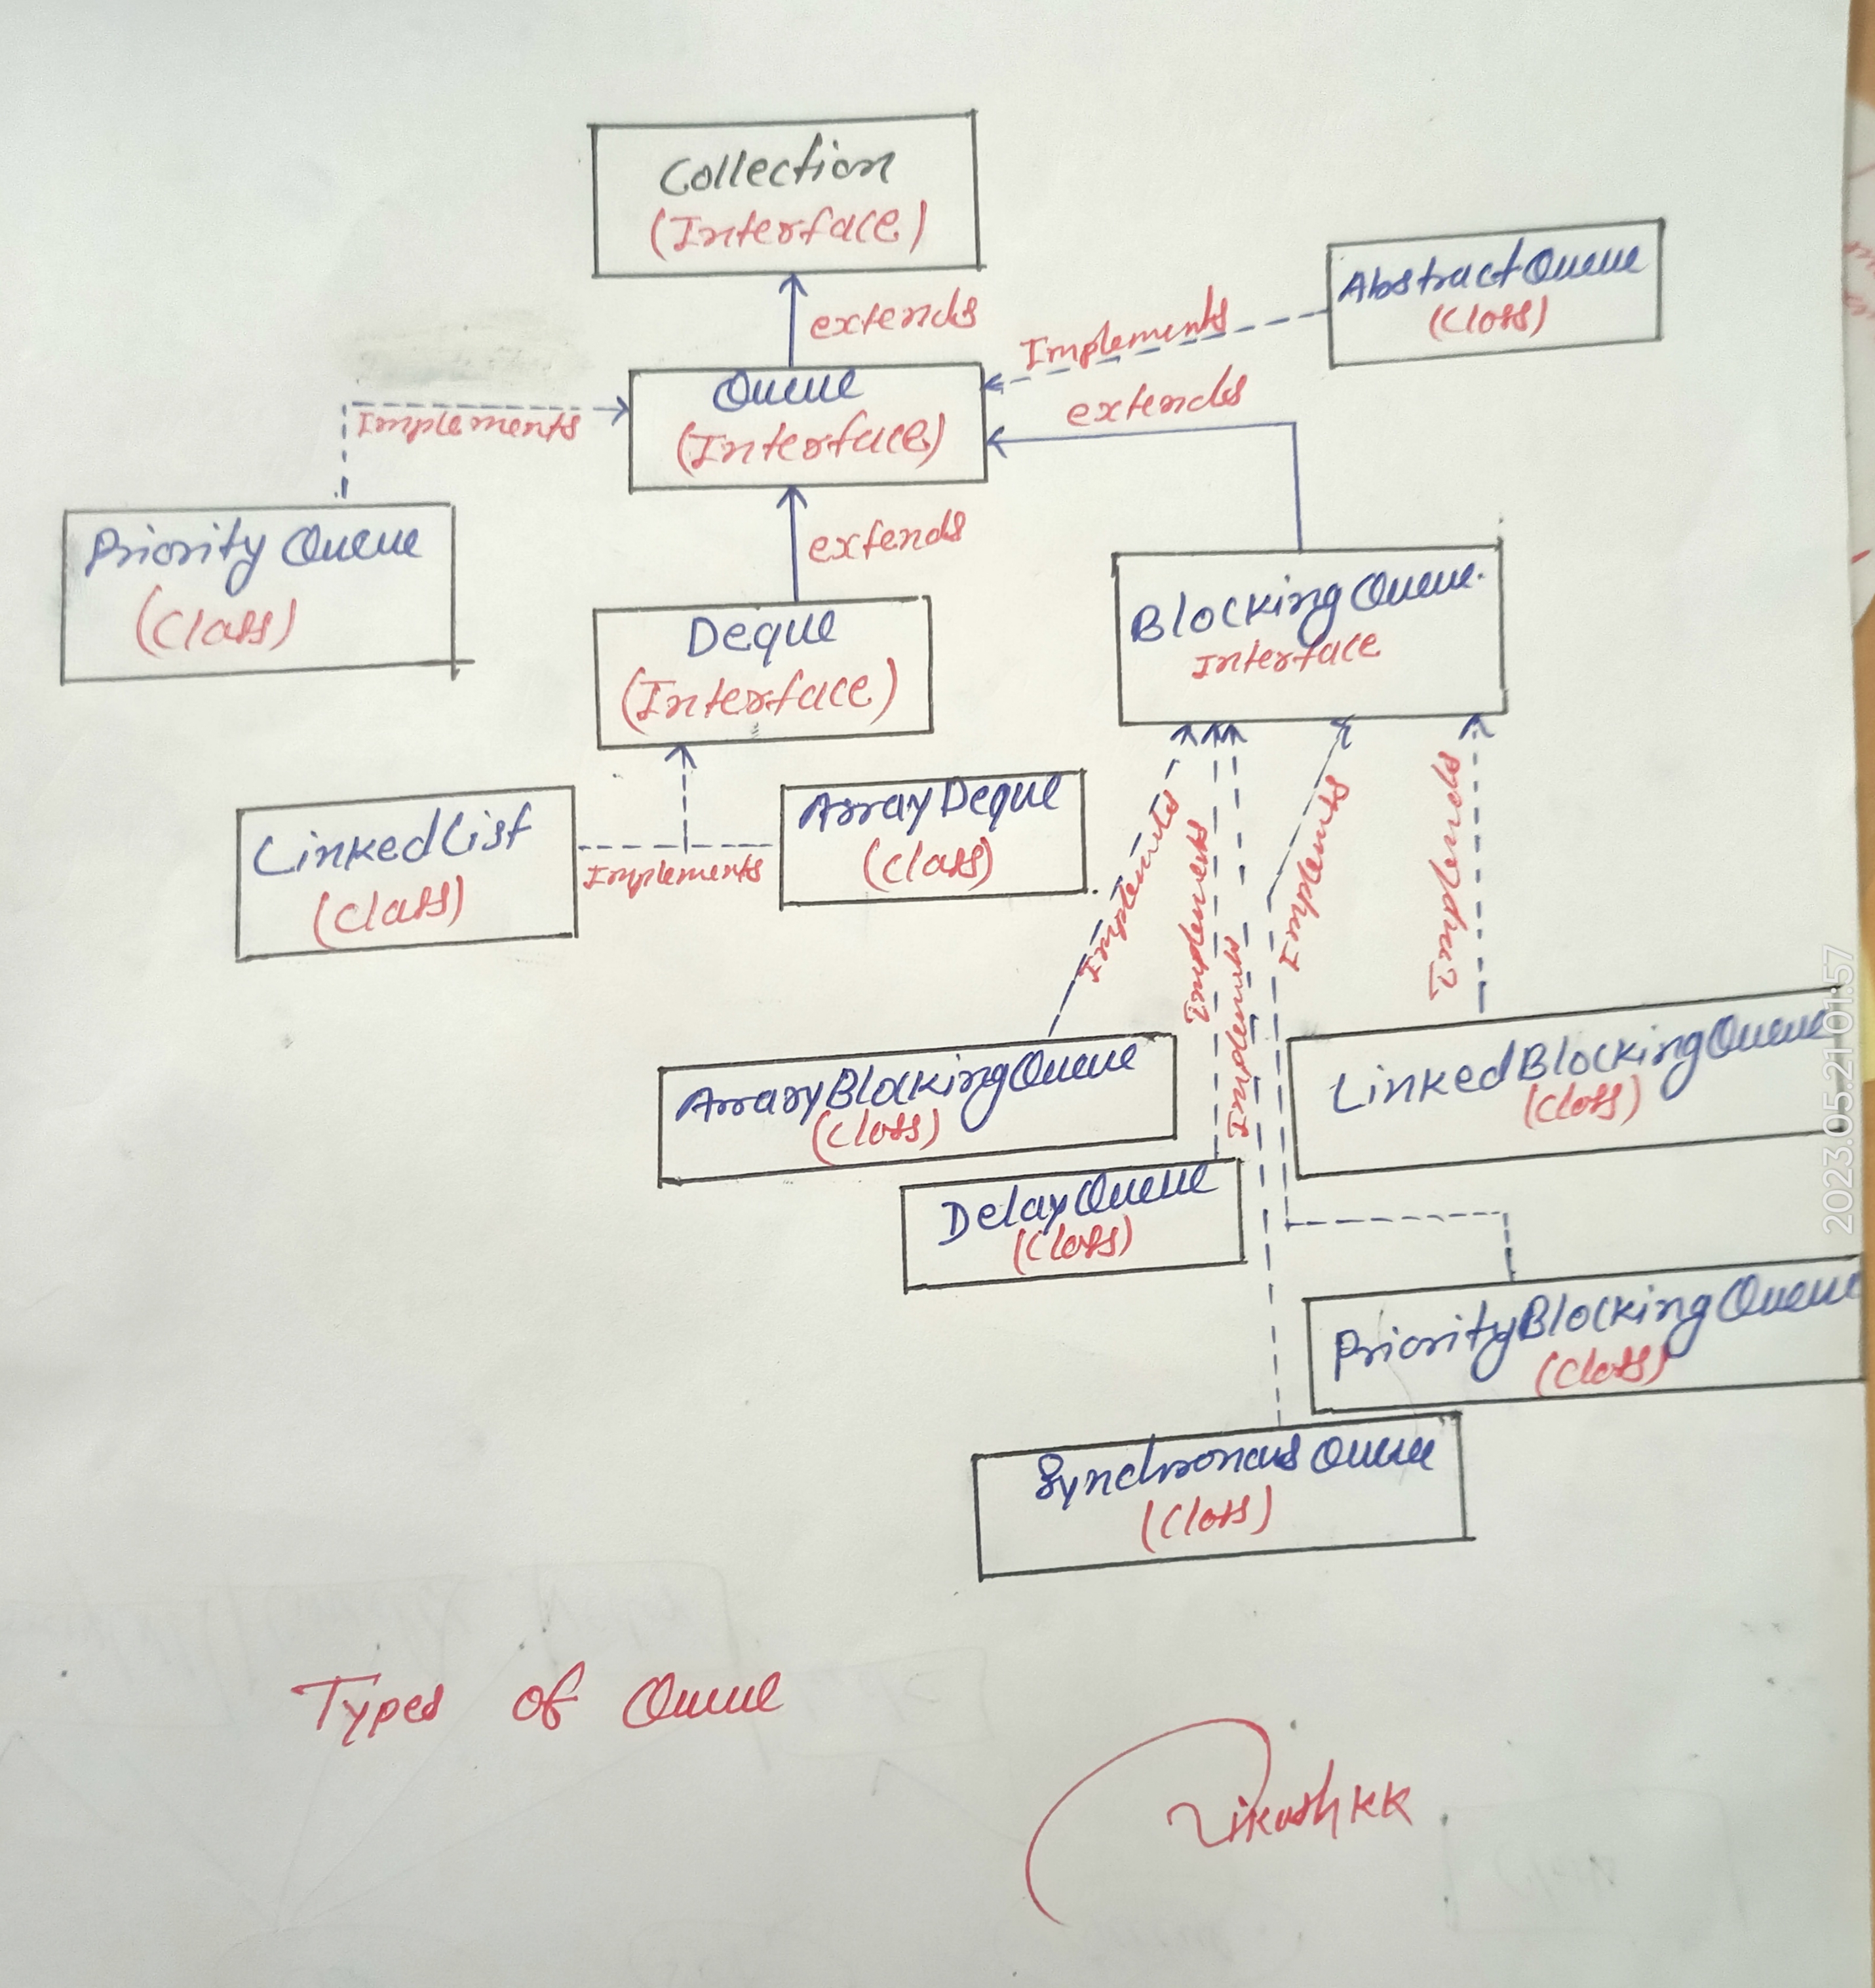 Collection
(Interface)
extends
AbstractQueue
(Class)
Implements
Queue
(Interface)
extends
Implements
Priority Queue
(Class)
extends
Deque
(Interface)
BlockingQueue.
Interface
LinkedList
(Class)
Implements
ArrayDeque
(Class)
Implements
Implements
Implements
Implements
Implements
ArrayBlockingQueue
(Class)
LinkedBlockingQueue
(Class)
DelayQueue
(Class)
PriorityBlockingQueue
(Class)
SynchronousQueue
(Class)
Types of Queue
Vikash KK
2023.05.21 01:57